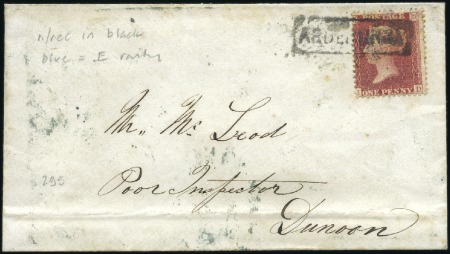 n/rec in black
blue = E rarity
POSTAGE
ONE PENNY
Mr. Mc Leod
295
Poor Inspector
Dunoon